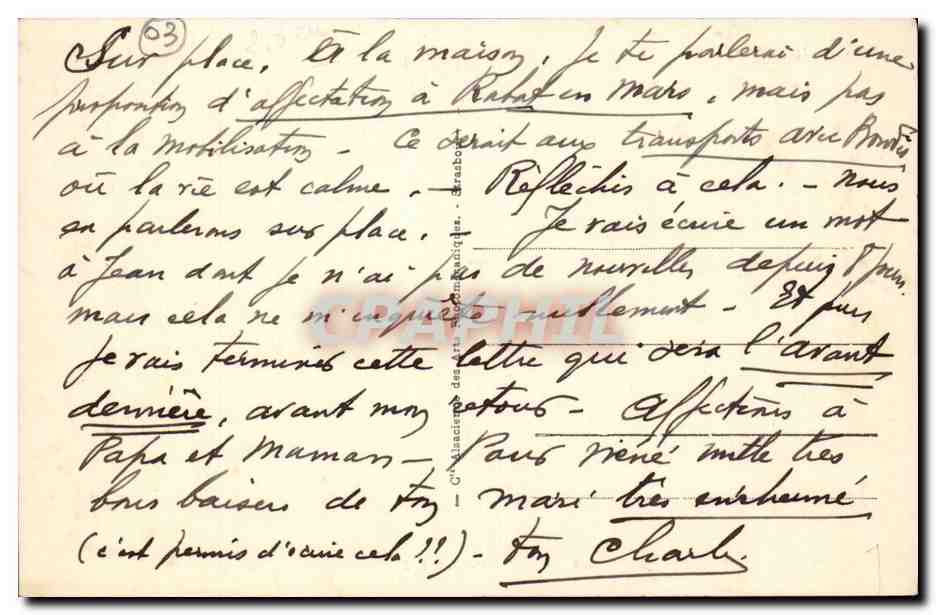 03
Sur place, et à la maison, je te parlerai d'une
proposition d'affectation à Rabat en Mars, mais pas
à la mobilisation – Ce serait aux transports avec
où la vie est calme. – Réfléchis à cela. – Nous
en parlerons sur place. – Je vais écrire un mot
à Jean dont je n'ai pas de nouvelles depuis 8 jours.
mais cela ne m'inquiète nullement – Et puis
je vais terminer cette lettre qui sera l'avant
dernière, avant mon retour – Affectueux à
Papa et Maman – Pour mille très
bons baisers de ton mari très enrhumé
(c'est permis d'écrire cela ?!!) – ton Charles
– Cie Alsacienne des Arts Photomécaniques. - Strasbourg
CPAPHIL